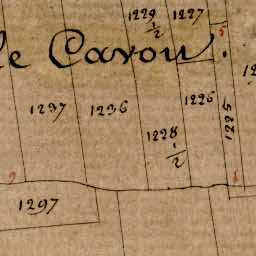 1229 1/2 1227
le Cavou.
5
1237 1236 1226
1228 1/2 1225
9 6
1297